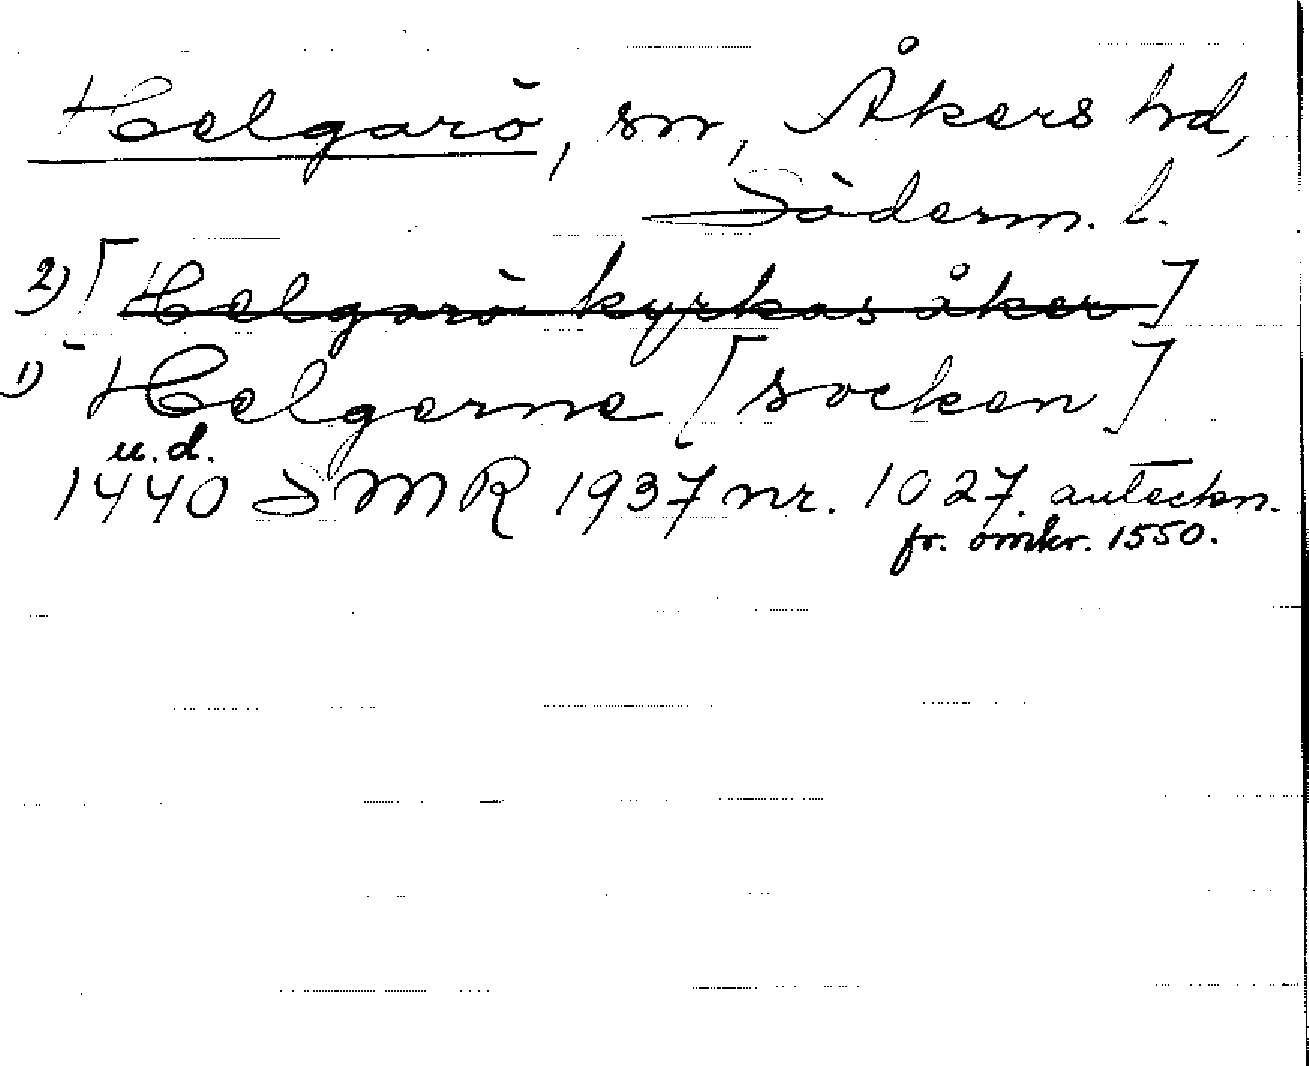 Helgarö, sn, Åkers hd,
Söderm. l.
2) [Helgarö kyrkas åker]
1) Helgerne [socken]
u.d.
1440 SMR 1937 nr. 1027. anteckn.
fr. omkr. 1550.